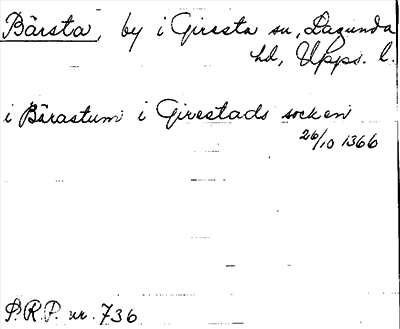 Bärsta, by i Giresta sn, Lagunda
hd, Upps. l.
i Bärastum i Girestads socken
26/10 1366
S.R.P. nr. 736